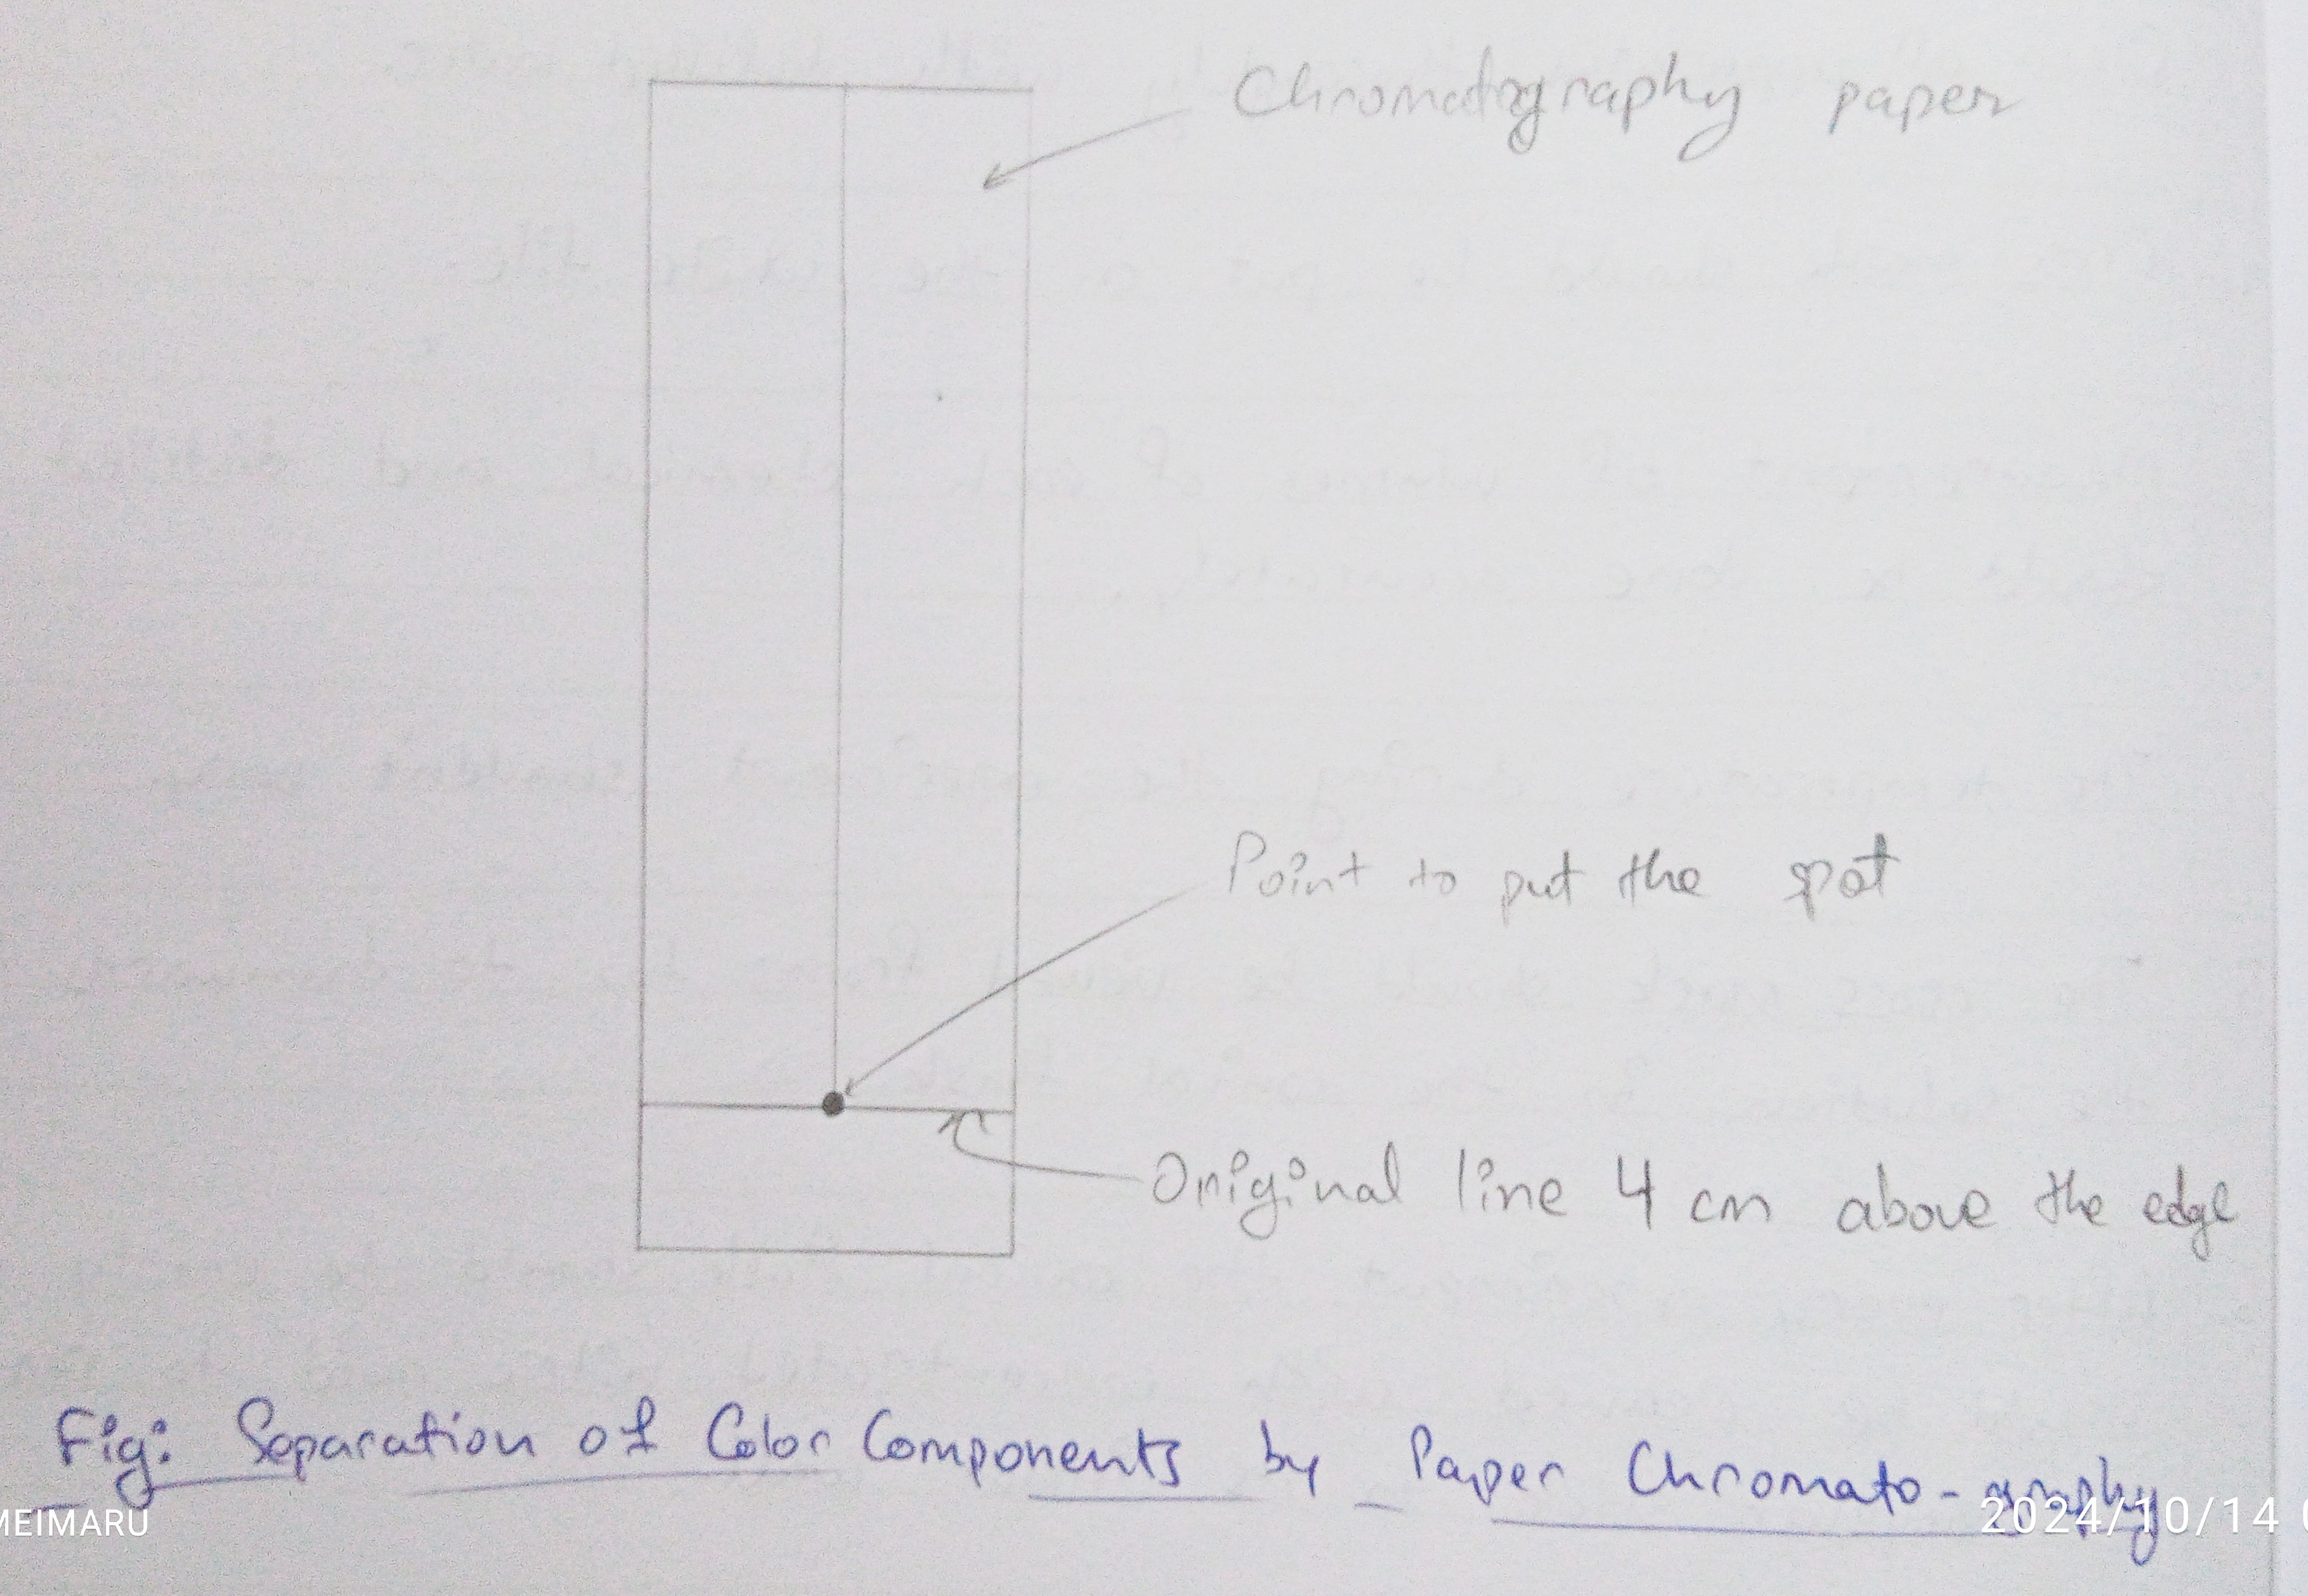 Chromatography paper
Point to put the spot
Original line 4 cm above the edge
Fig: Separation of Color Components by Paper Chromato-graphy
MEIMARU
2024/10/14